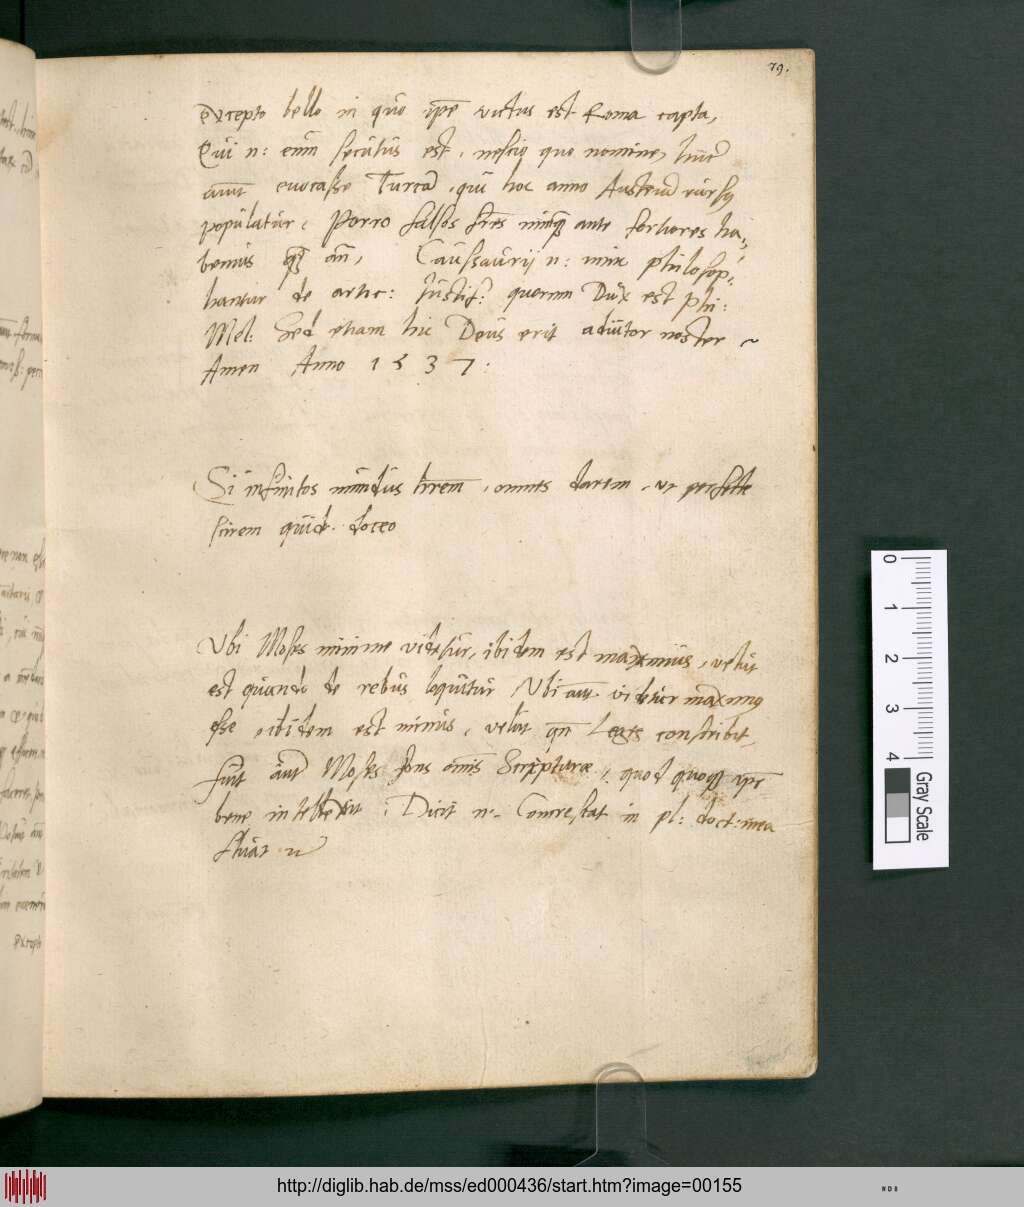 79.
Excepto bello in quo ipse victus est Roma capta,
Qui n: enim secutus est, nescio quo nomine, hunc
aiunt euocasse Turcā, qui hoc anno Austriā rursq
populatur, Porro falsos frēs nunqꝫ ante fortiores ha,
bemus qꝫ añ, Caussarij n: mix philosop,
hantur de artic: Justif: quorum Dux est Phi:
Mel: Sed etiam hic Deus erit adiutor noster ~
Amen Anno 1537.
Si infinitos mundus hrem, omnes darem, vt perfecte
scirem quid doceo
Vbi Moses minime videtur, ibidem est maximus, velut
est quando de rebus loquitur Vbi aut. videtur maximus
esse, ibidem est minus, velut qn Leges conscribit,
fuit aut Moses fons omis Scripturæ, quod quoqꝫ ipse
bene intellexit, Dicit n. Concrescat in pl: doct: mea
fluat
Excepto
0 1 2 3 4
Gray Scale
http://diglib.hab.de/mss/ed000436/start.htm?image=00155